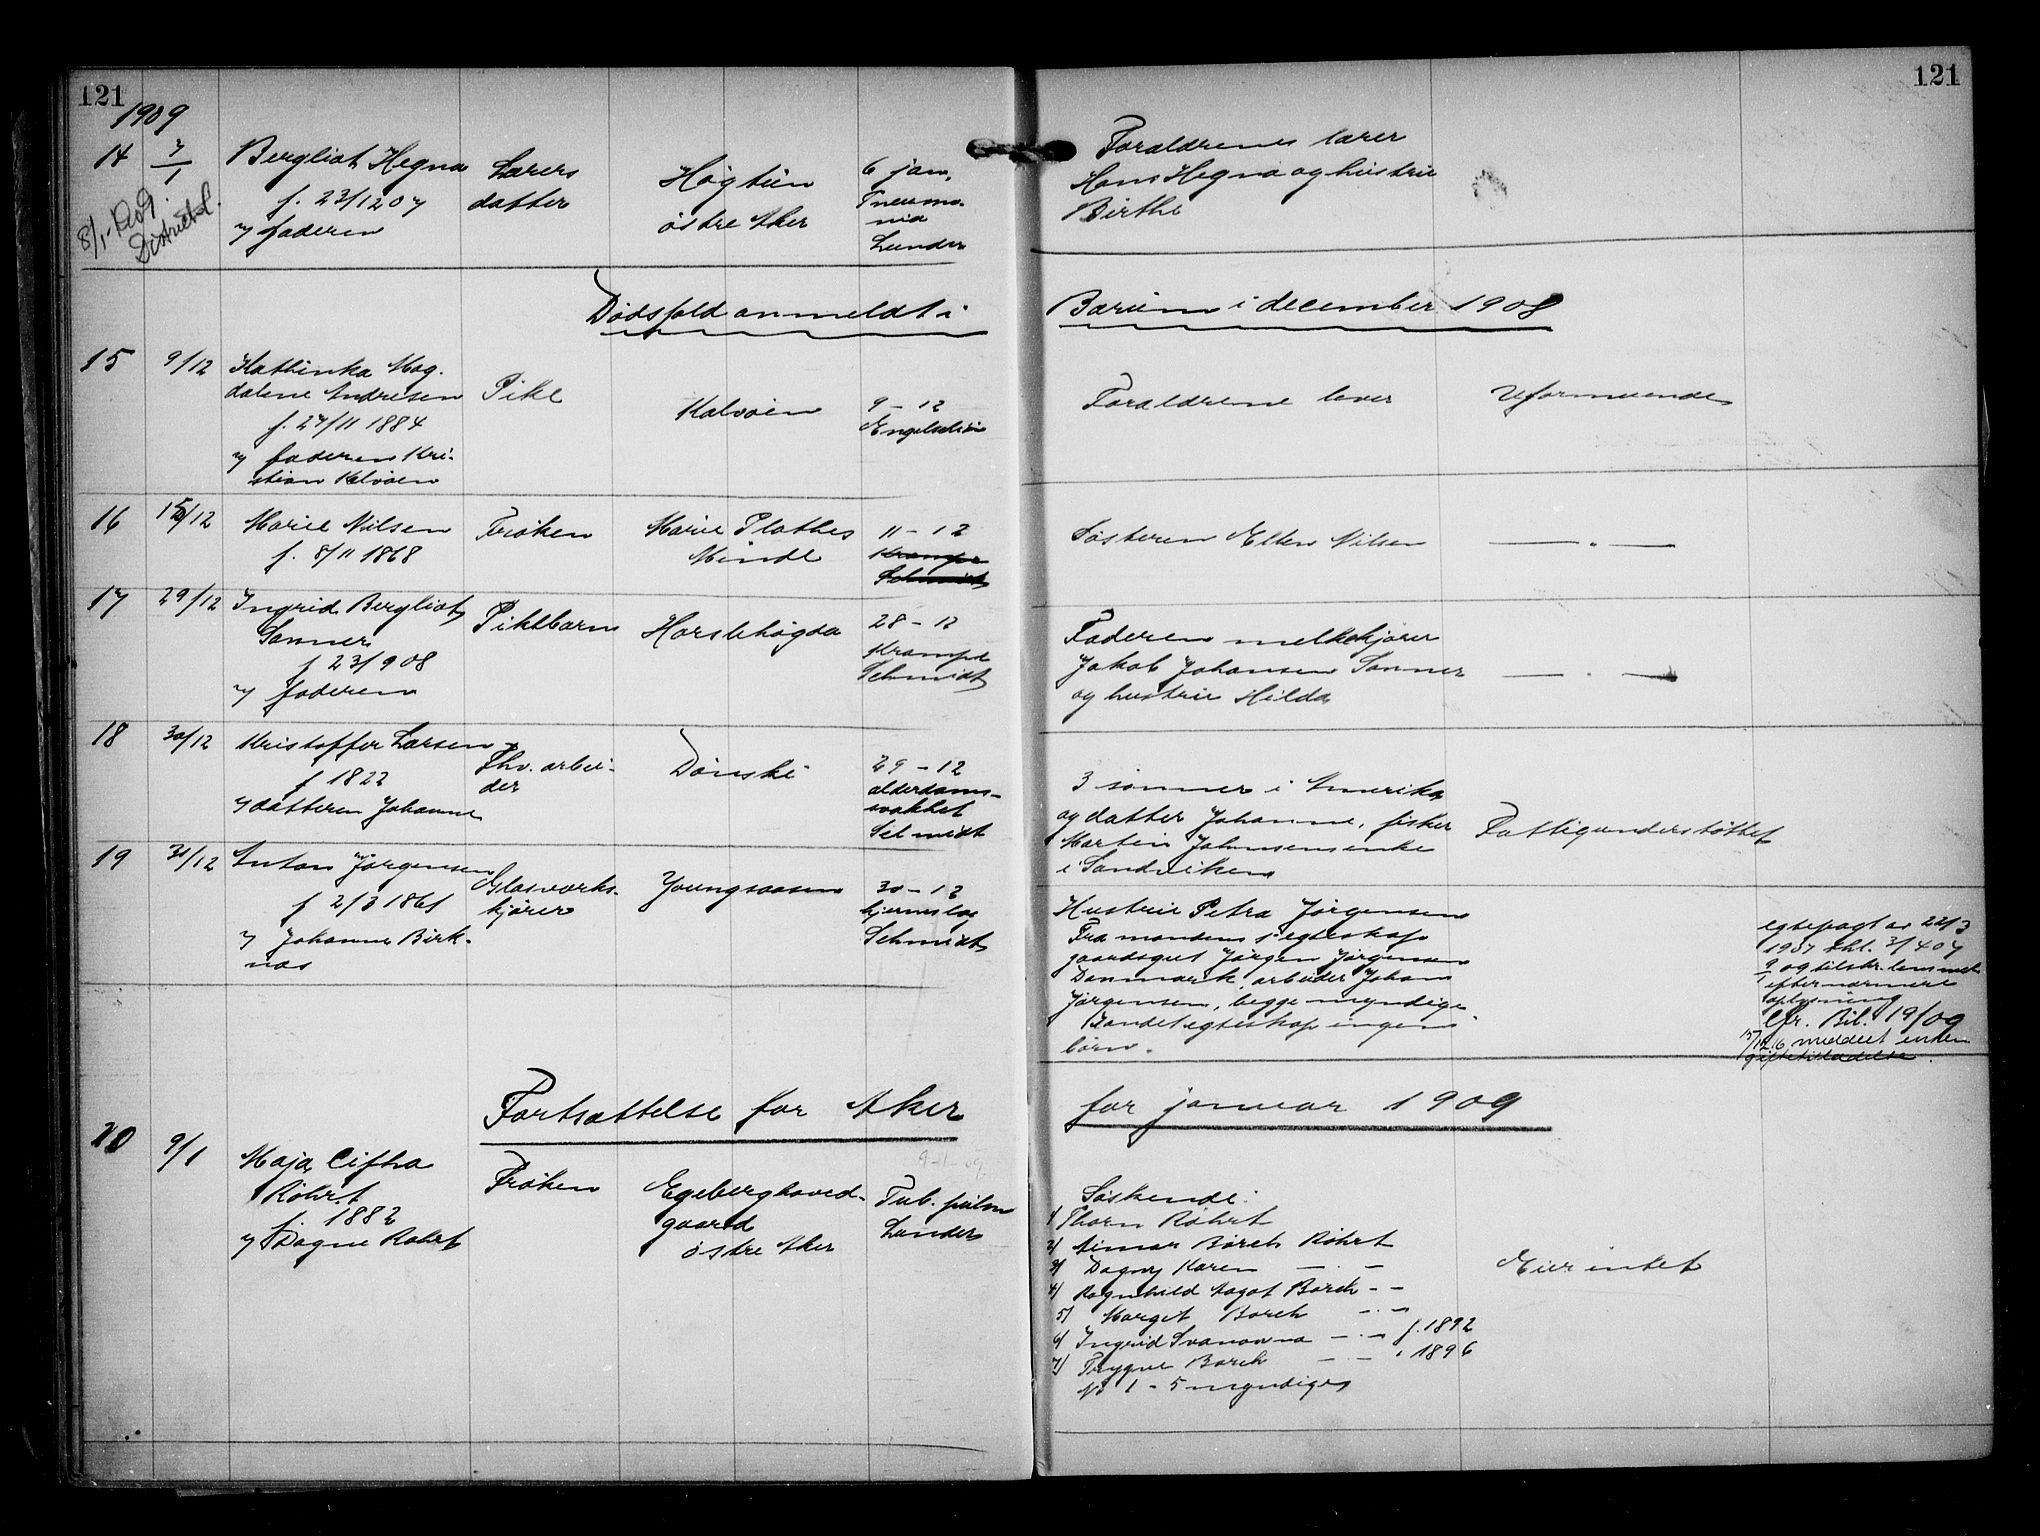 121
1909
14 7/1 Bergliot Hegna
f. 23/12 07
v/ faderen
8/1
Lærers
datter
østre Aker
6 jan.
Pneumo-
nia
Lunder
121
Forældrene lærer
Hans Hegna og hustru
Birthe
Dødsfald anmeldt i
Bærum i december 1908
15 9/12 Kathinka Mag-
dalene Andresen
f. 27/11 1884
v/ faderen Kri-
stian Kalvøen
Pike
Kalvøen
9 - 12
Forældrene lever
Uformuende
16 15/12 Marie Nilsen
f. 8/11 1868
Frøken
Marie Plathes
Minde
11 - 12
Krampe
Schmidt
Søsteren Ellen Nilsen — " —
17 29/12 Ingrid Bergliot
Sønner
f 23/9 08
v/ faderen
Pikebarn
Horslehøgda
28 - 12
Krampe
Schmidt
Faderen melkekjører
Jakob Johansen Sønner
og hustru Hilda — " —
18 30/12 Kristoffer Larsen
f 1822
v/ datteren Johanne
Fhv. arbei-
der
Dønski
29 - 12
alderdoms-
svakhet
Schmidt
3 sønner i Amerika
og datter Johanne, fisker
Martin Johnsens enke
i Sandviken
Fattigunderstøttet
19 31/12 Anton Jørgensen
f 2/3 1861
v/ Johannes Birk-
næs
Glasværks-
kjører
Youngsaasen
30 - 12
hjerneslag
Schmidt
Hustru Petra Jørgensen
Fra mandens 1' egteskap
gaardsgut Jørgen Jørgensen
Danmark, arbeider Johan
Jørgensen, begge myndige
I andet egteskap ingen
børn.
egtepagt av 22/3
1907 thl. 3/4 07
9/1 og tilskr. lensmd
efter nærmere
oplysning
Cfr. Bil. 19/09
meddelt enken
giftetilladelse.
Fortsættelse for Aker
for januar 1909
20 9/1 Maja Cifha
Röhrt
f. 1882
v/ Dagne Röhrt
Frøken
Egeberghoved-
gaard
østre Aker
9-1-09
Tub. pulm
Lunder
Søskende:
1/ Thorn Röhrt
2/ Aimar Borch Röhrt
3/ Dagny Karen — . —
4/ Ragnhild Aagot Borch - -
5/ Margit Borch - . -
6/ Ingrid Svanovna - . - f. 1892
7/ Trygve Borch - . - " 1896
No 1 - 5 myndige
Eier intet